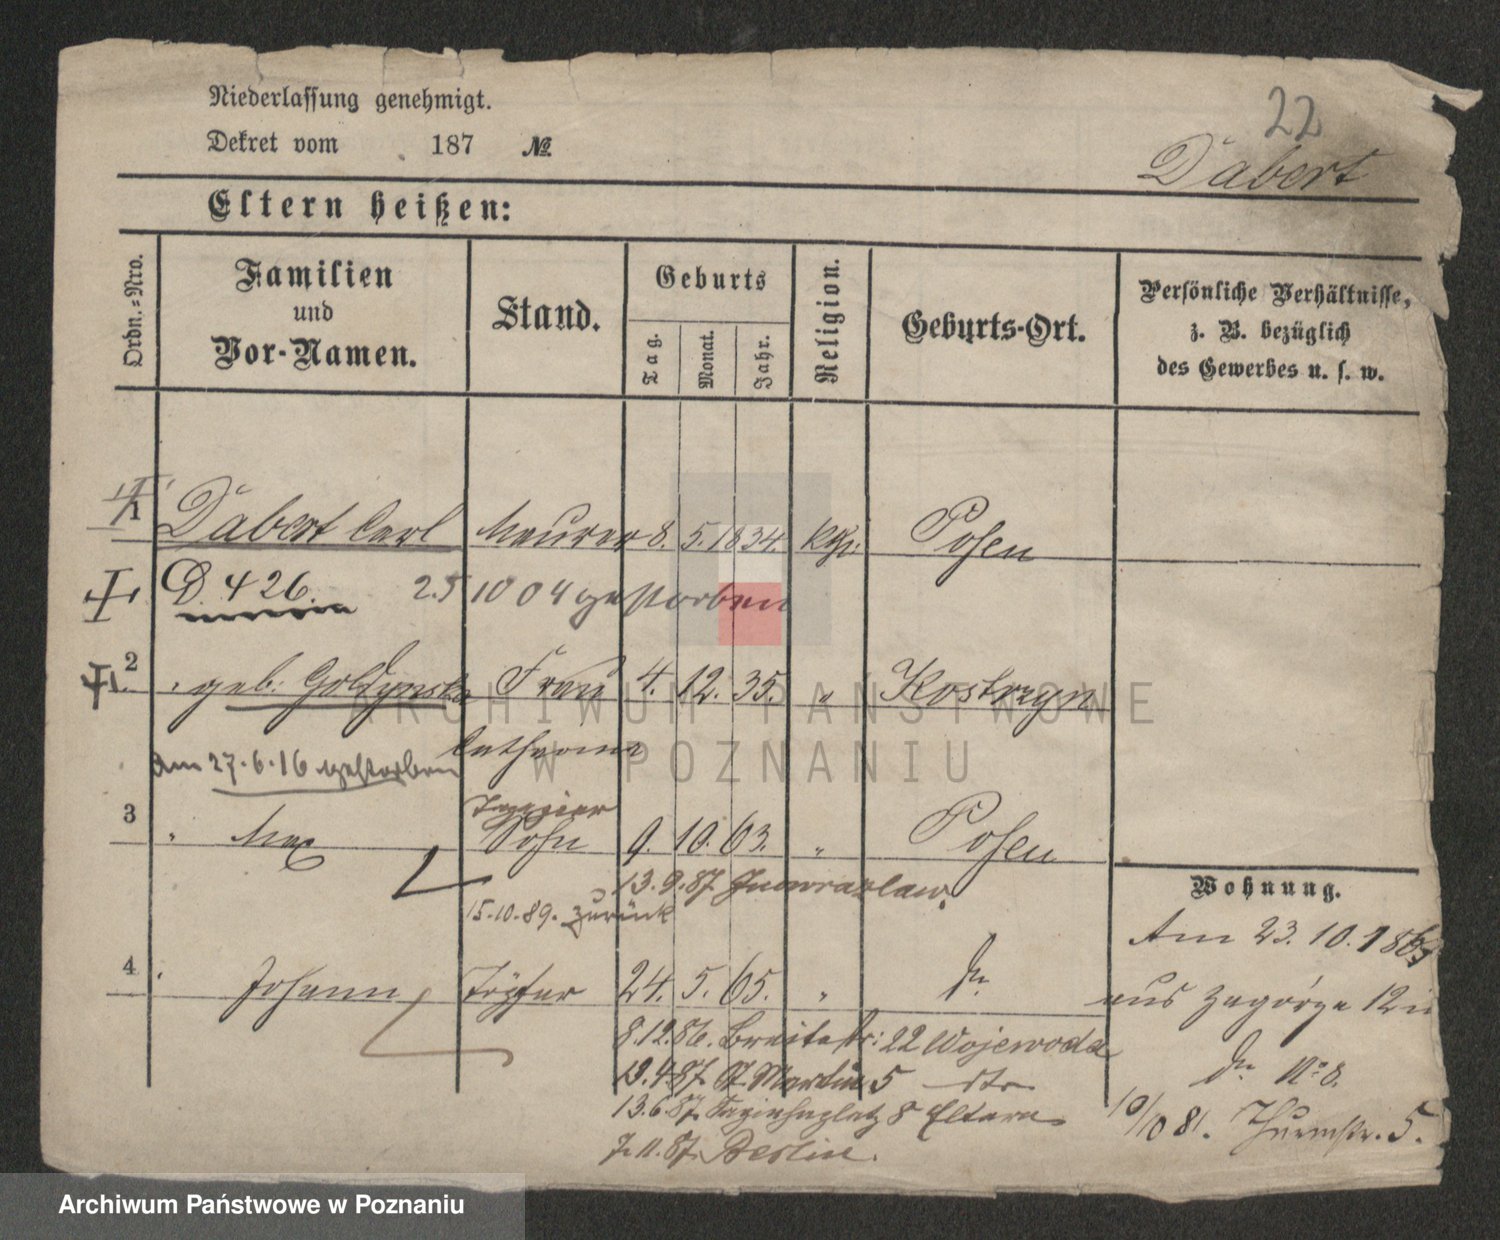 Niederlassung genehmigt.
22
Dekret vom 187 №
Dabert
Eltern heißen:
Ordn.-Nro.
Familien
und
Vor-Namen.
Stand.
Geburts
Tag.
Monat.
Jahr.
Religion.
Geburts-Ort.
Persönliche Verhältnisse,
z. B. bezüglich
des Gewerbes u. s. w.
1 Dabert Carl Maurer 8. 5. 1834. kth. Posen
D. 426. 2.5 10 04 gestorben
2 " geb. Goldynska Frau 4. 12. 35. " Kostrzyn
Catharina
am 27.6.16 gestorben
3 " Max Sohn 9. 10. 63. " Posen
13.9.87. Inowrazlaw.
15.10.89. zurück
4 " Johann Töpfer 24. 5. 65. " do
8.12.86. Breitestr: 22 Wojewoda
19.4.87. St Martin 5
13.6.87. 8 Eltern
7.11.87. Berlin.
Wohnung.
Am 23. 10. 1869
aus Zagórze 12
do No 8.
10/10 81. Thurmstr. 5.
ARCHIWUM PAŃSTWOWE
W POZNANIU
Archiwum Państwowe w Poznaniu